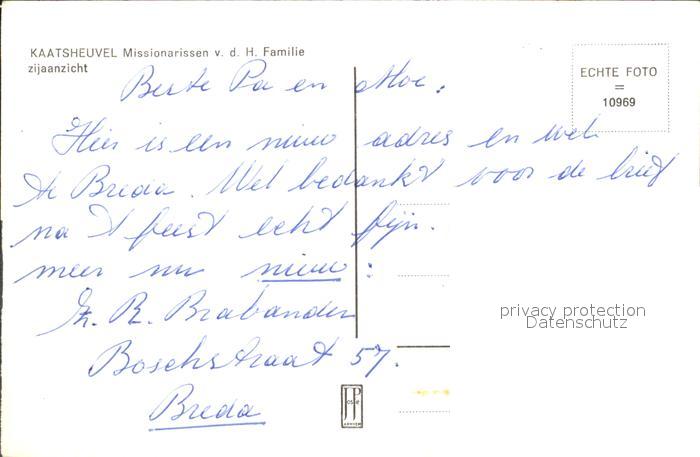 KAATSHEUVEL Missionarissen v. d. H. Familie
zijaanzicht
ECHTE FOTO
=
10969
Beste Pa en Moe:
Hier is een nieuw adres en wel
te Breda. Wel bedankt voor de brief
na 't feest echt fijn.
meer nu nieuw:
R. Brabander
Boschstraat 57.
Breda
privacy protection
Datenschutz
JosPé
ARNHEM